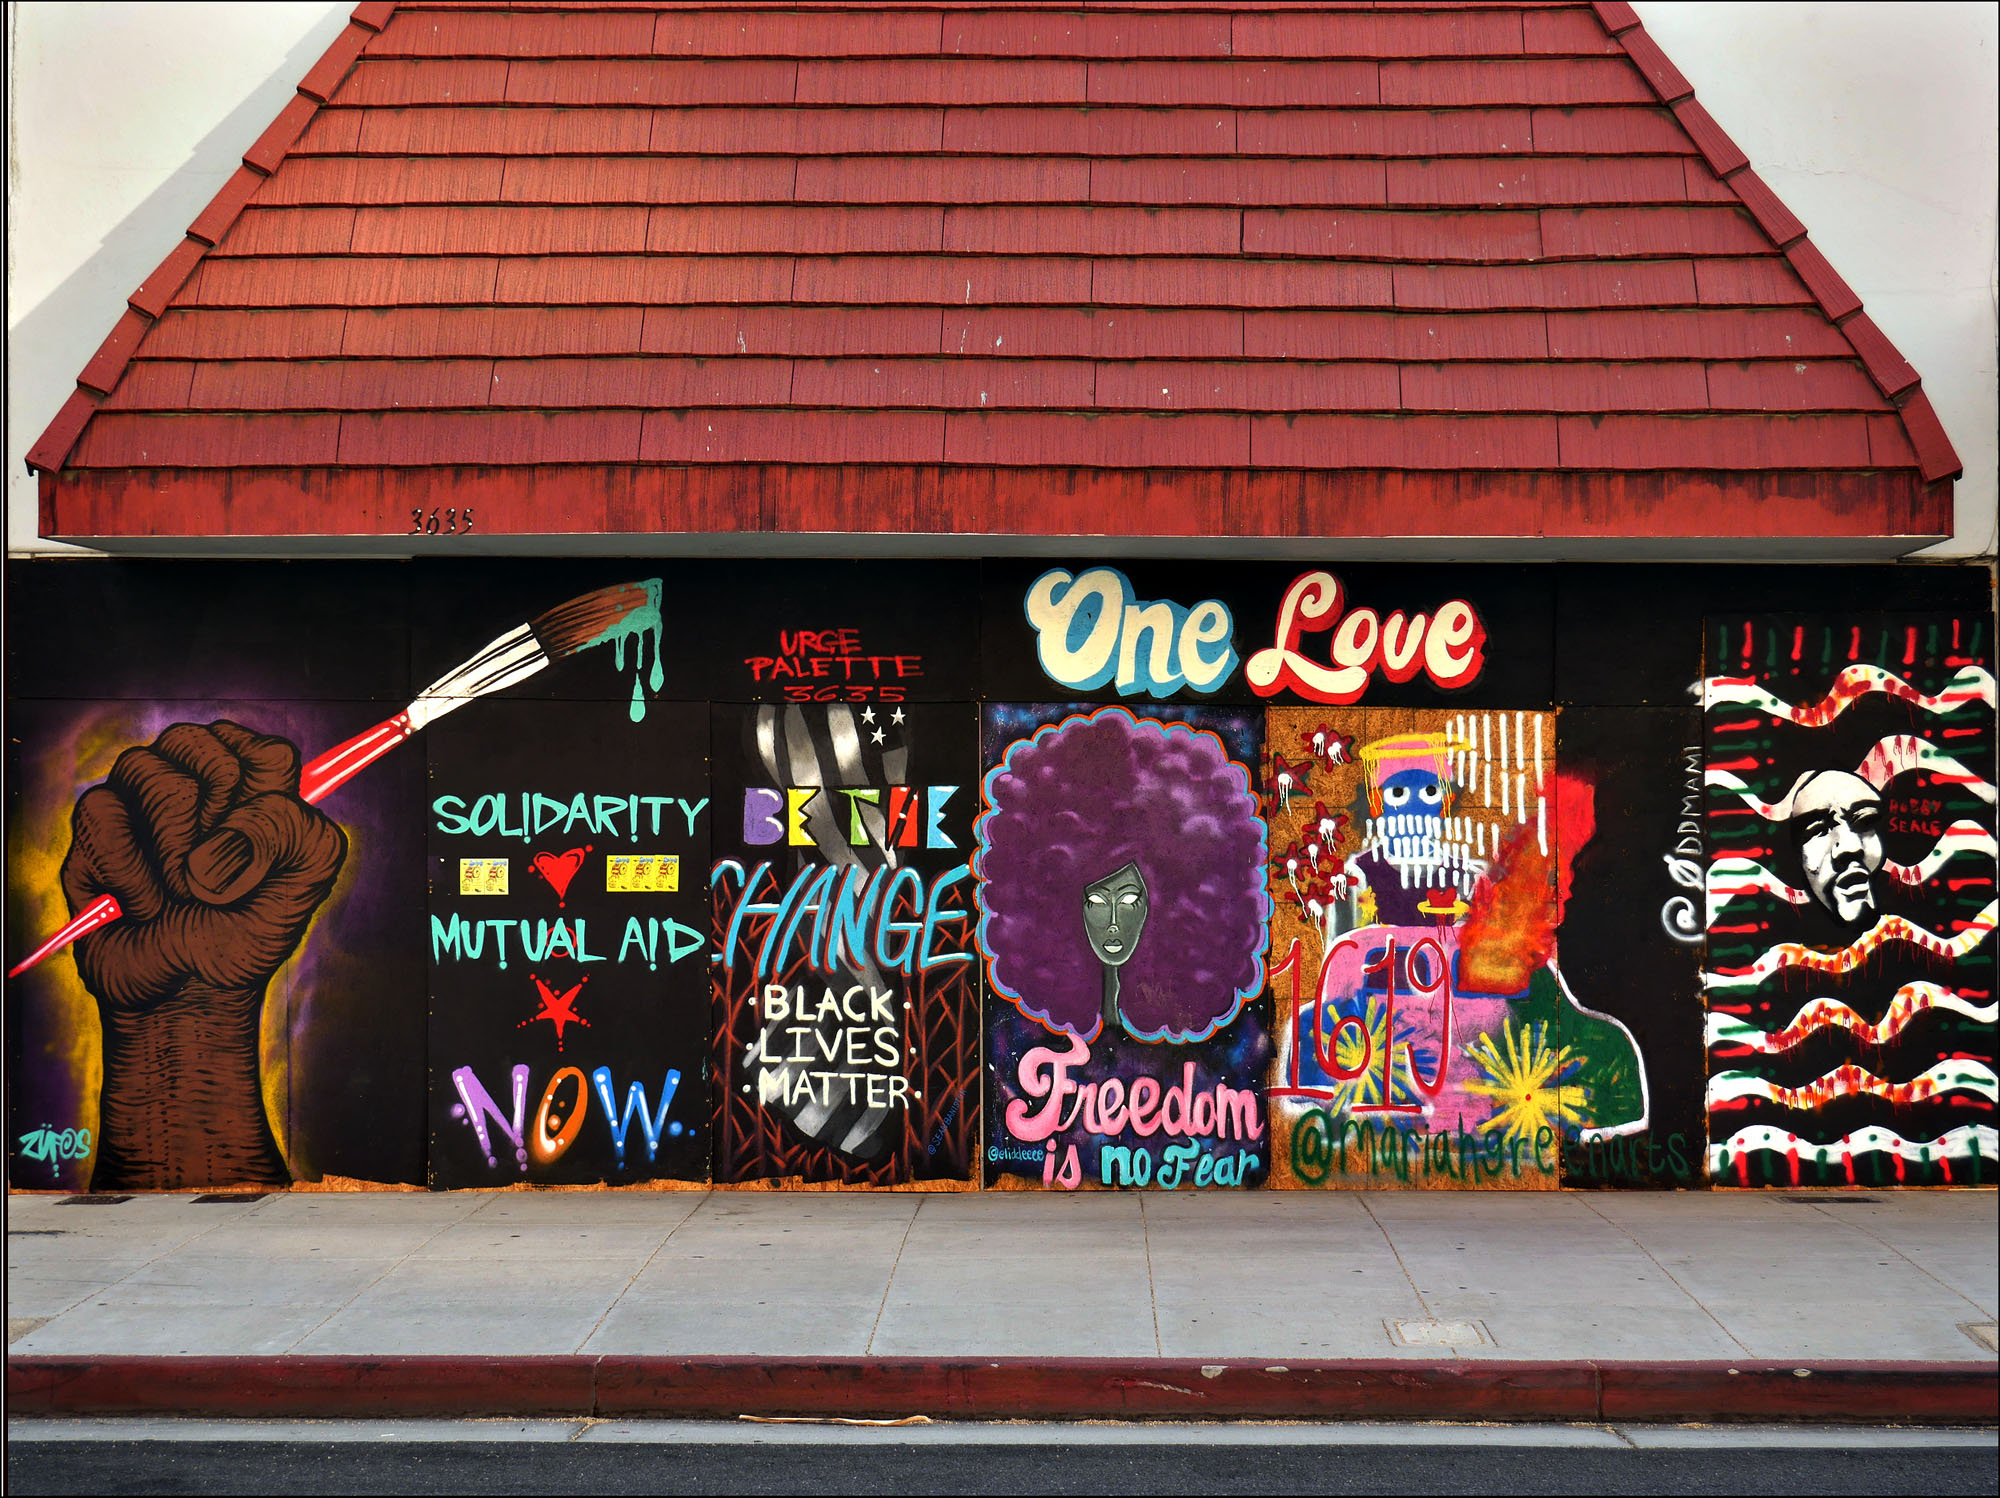 3635
URGE
PALETTE
3635
One Love
SOLIDARITY
MUTUAL AID
NOW
ZÜFOS
BE THE
CHANGE
BLACK
LIVES
MATTER
Freedom
is no Fear
@eliddeeee
1619
@mariahgreenarts
@ØDDMAMI
BOBBY
SEALE